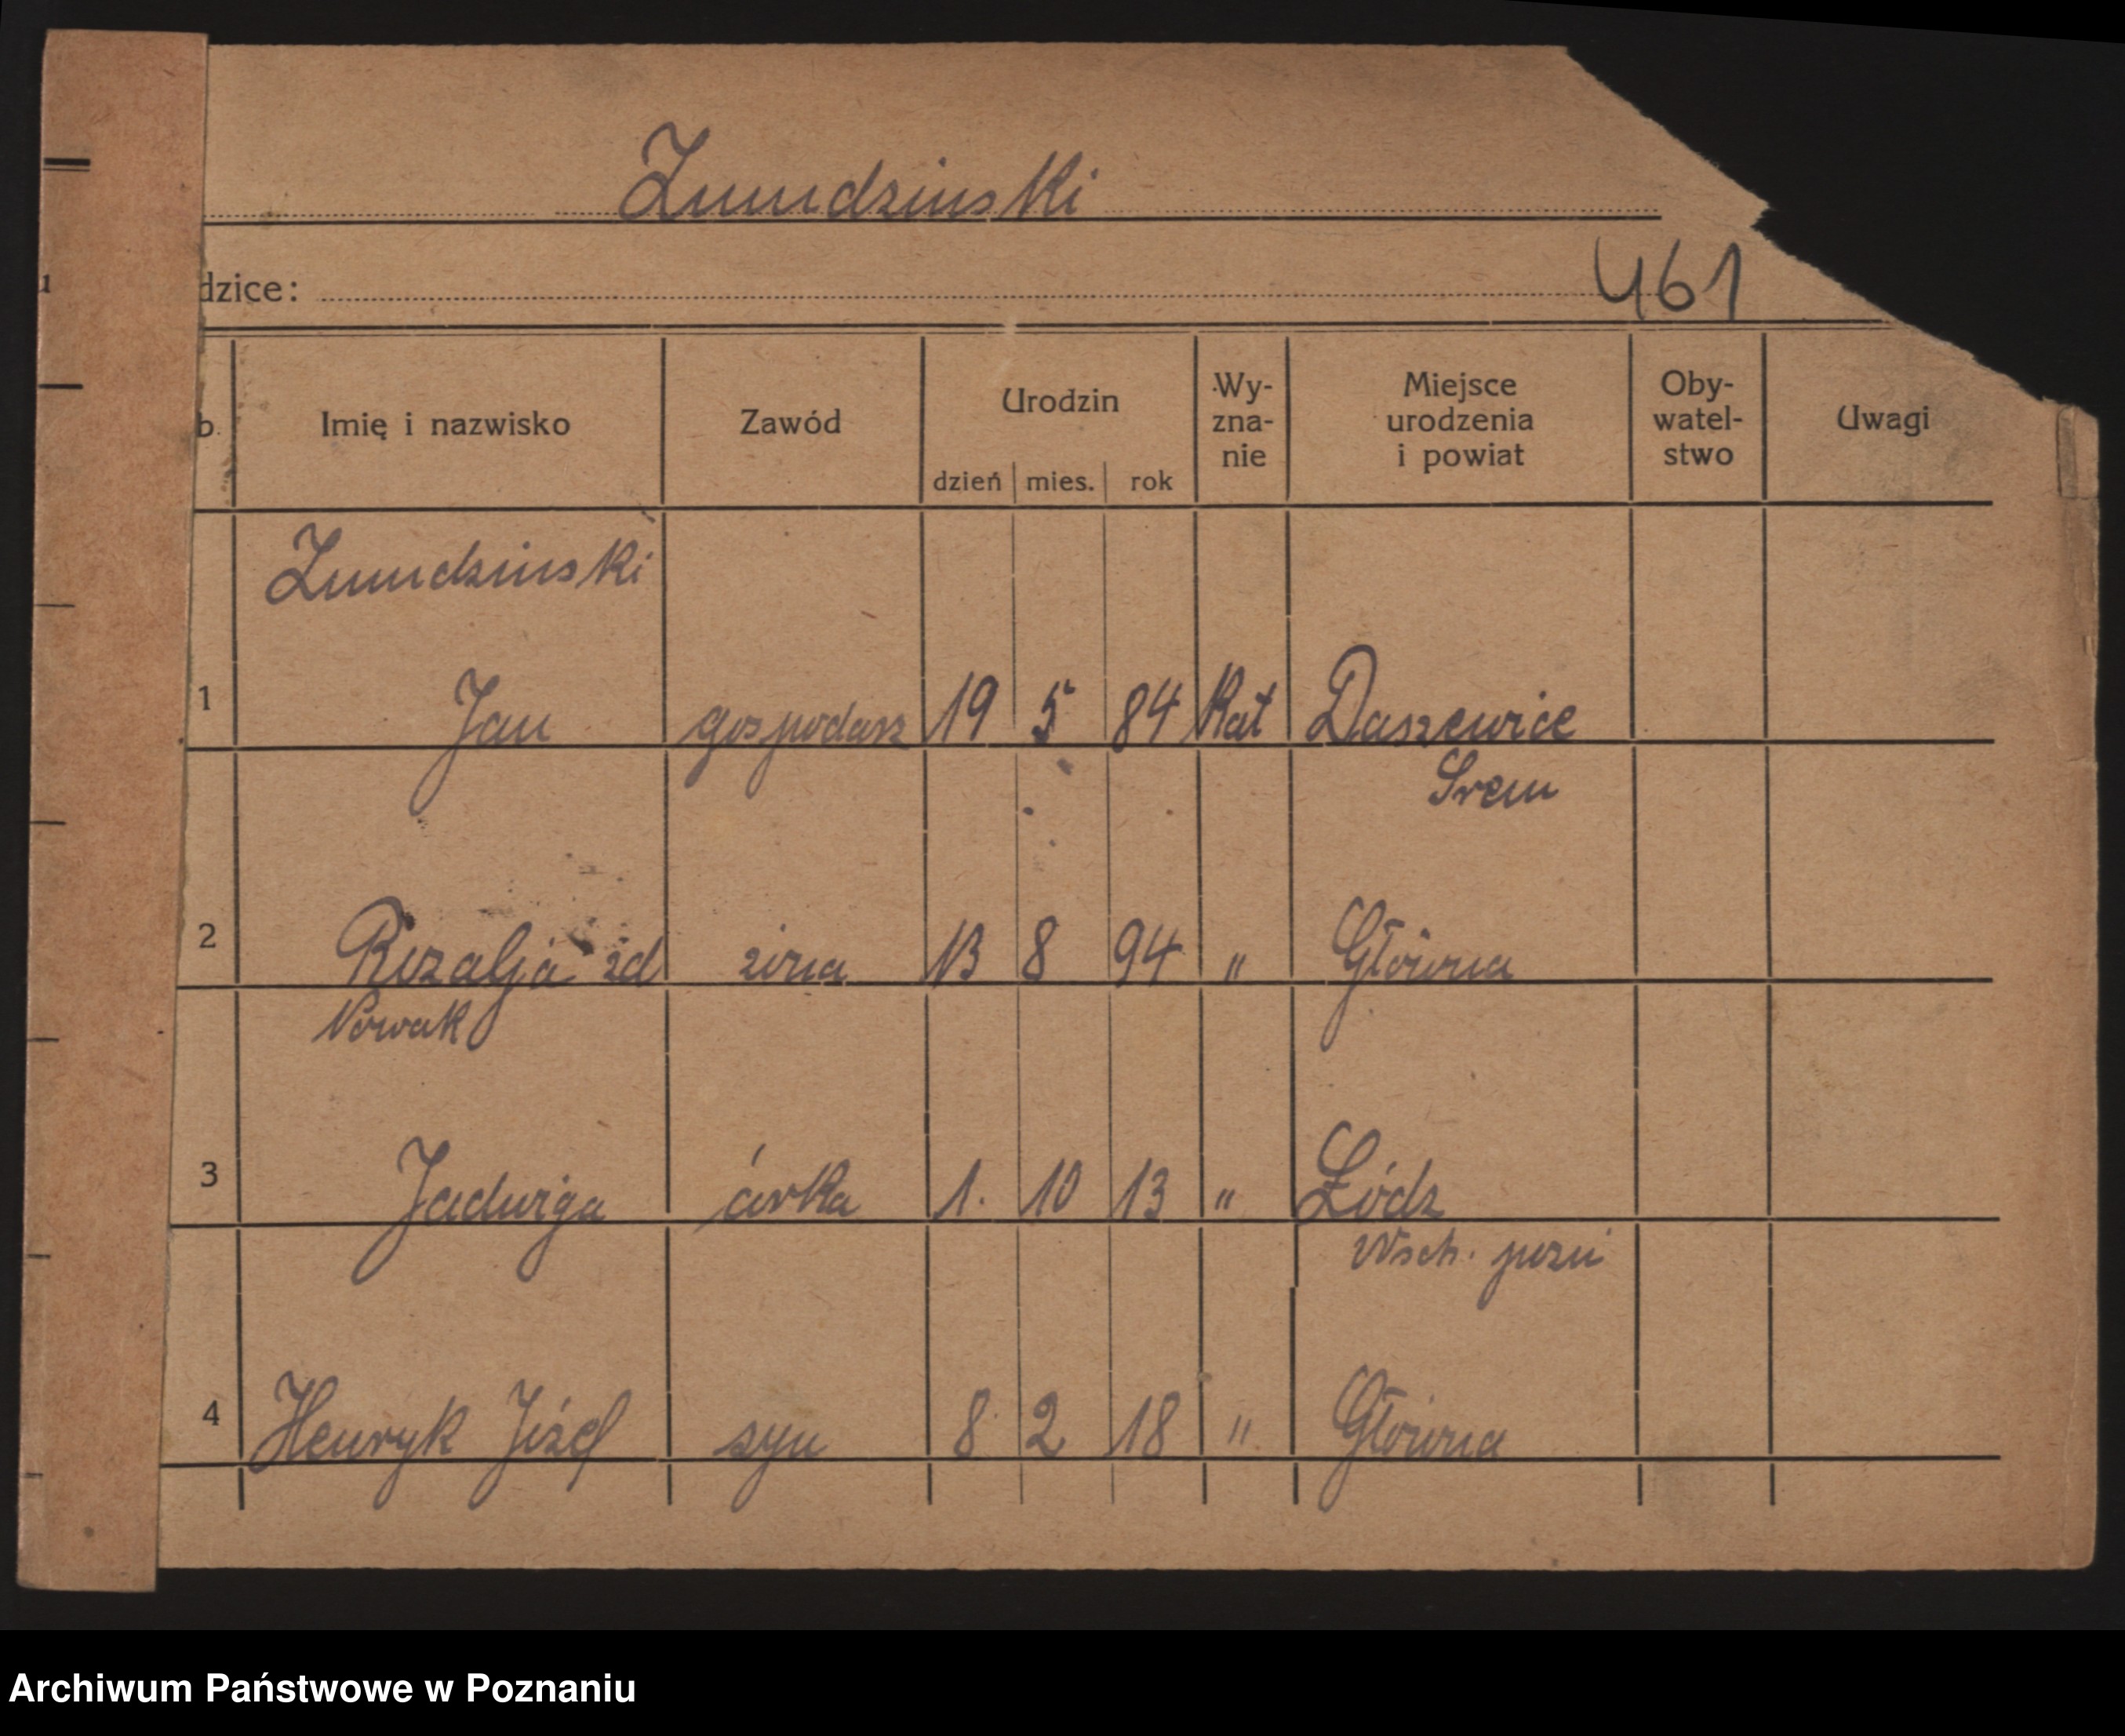 Zmudzinski
dzice:
461
b.
Imię i nazwisko
Zawód
Urodzin
dzień mies. rok
Wy-
zna-
nie
Miejsce
urodzenia
i powiat
Oby-
watel-
stwo
Uwagi
Zmudzinski
1 Jan gospodarz 19 5 84 Kat Daszewice
Srem
2 Rozalja zd żona 13 8 94 " Główna
Nowak
3 Jadwiga córka 1. 10 13 " Łódz
Wsch. pozn
4 Henryk Józef syn 8 2 18 " Główna
Archiwum Państwowe w Poznaniu